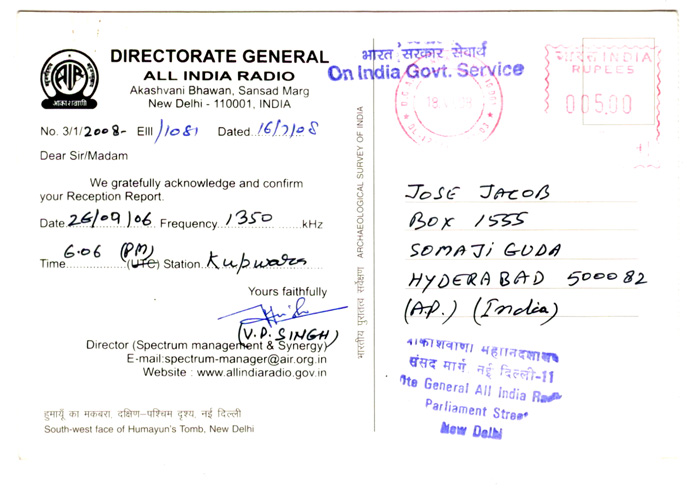 AIR
आकाशवाणी
DIRECTORATE GENERAL
ALL INDIA RADIO
Akashvani Bhawan, Sansad Marg
New Delhi - 110001, INDIA
No. 3/1/2008- EIII/1081 Dated 16/7/08
Dear Sir/Madam
We gratefully acknowledge and confirm
your Reception Report.
Date 26/09/06 Frequency 1350 kHz
Time 6.06 (PM) (UTC) Station Kupwara
Yours faithfully
(V.P. SINGH)
Director (Spectrum management & Synergy)
E-mail:spectrum-manager@air.org.in
Website : www.allindiaradio.gov.in
हुमायूँ का मकबरा, दक्षिण-पश्चिम दृश्य, नई दिल्ली
South-west face of Humayun's Tomb, New Delhi
भारतीय पुरातत्व सर्वेक्षण ARCHAEOLOGICAL SURVEY OF INDIA
भारत सरकार सेवार्थ
On India Govt. Service
भारत INDIA
RUPLES
005.00
JOSE JACOB
BOX 1555
SOMAJI GUDA
HYDERABAD 500082
(A.P.) (India)
संसद मार्ग नई दिल्ली-11
Dte General All India Radio
Parliament Street
New Delhi